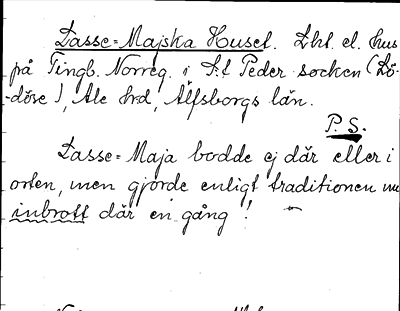 Lasse-Majska Huset. Lht. el. hus
på Tingb. Norreg. i S:t Peder socken (Lö-
-döse), Ale hrd, Älfsborgs län.
P.S.
Lasse-Maja bodde ej där eller i
orten, men gjorde enligt traditionen
inbrott där en gång!